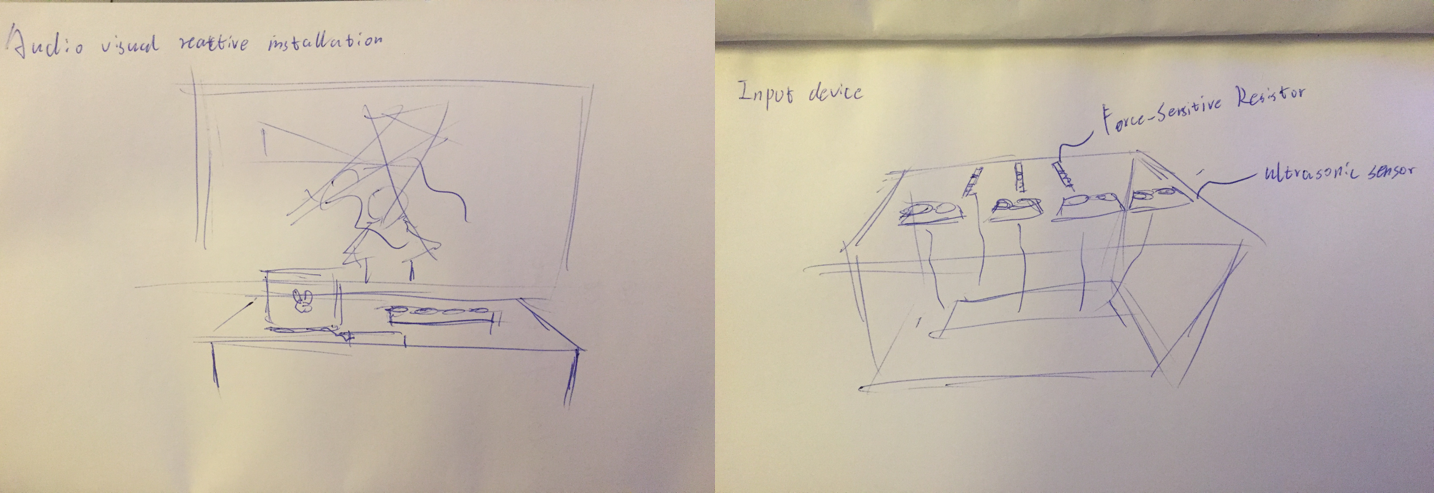 Audio visual reattive installation
Input device
Force-Sensitive Resistor
ultrasonic sensor